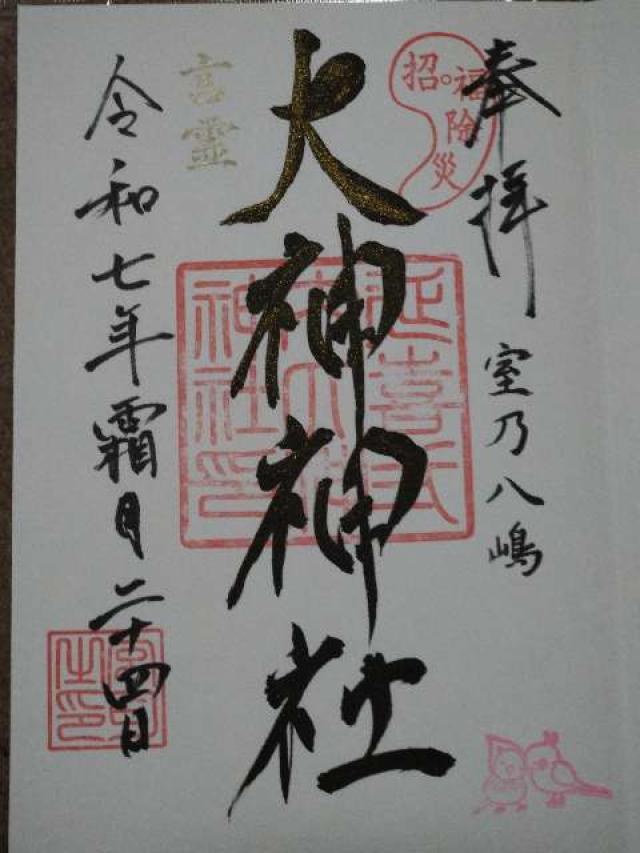 奉拝
室乃八嶋
招福除災
大神神社
延喜式
神社印
言霊
令和七年霜月二十四日